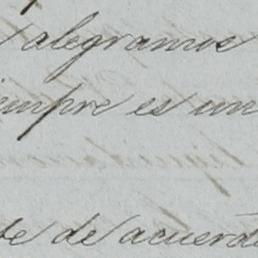 alegramos
iempre es un
te de acuerdo